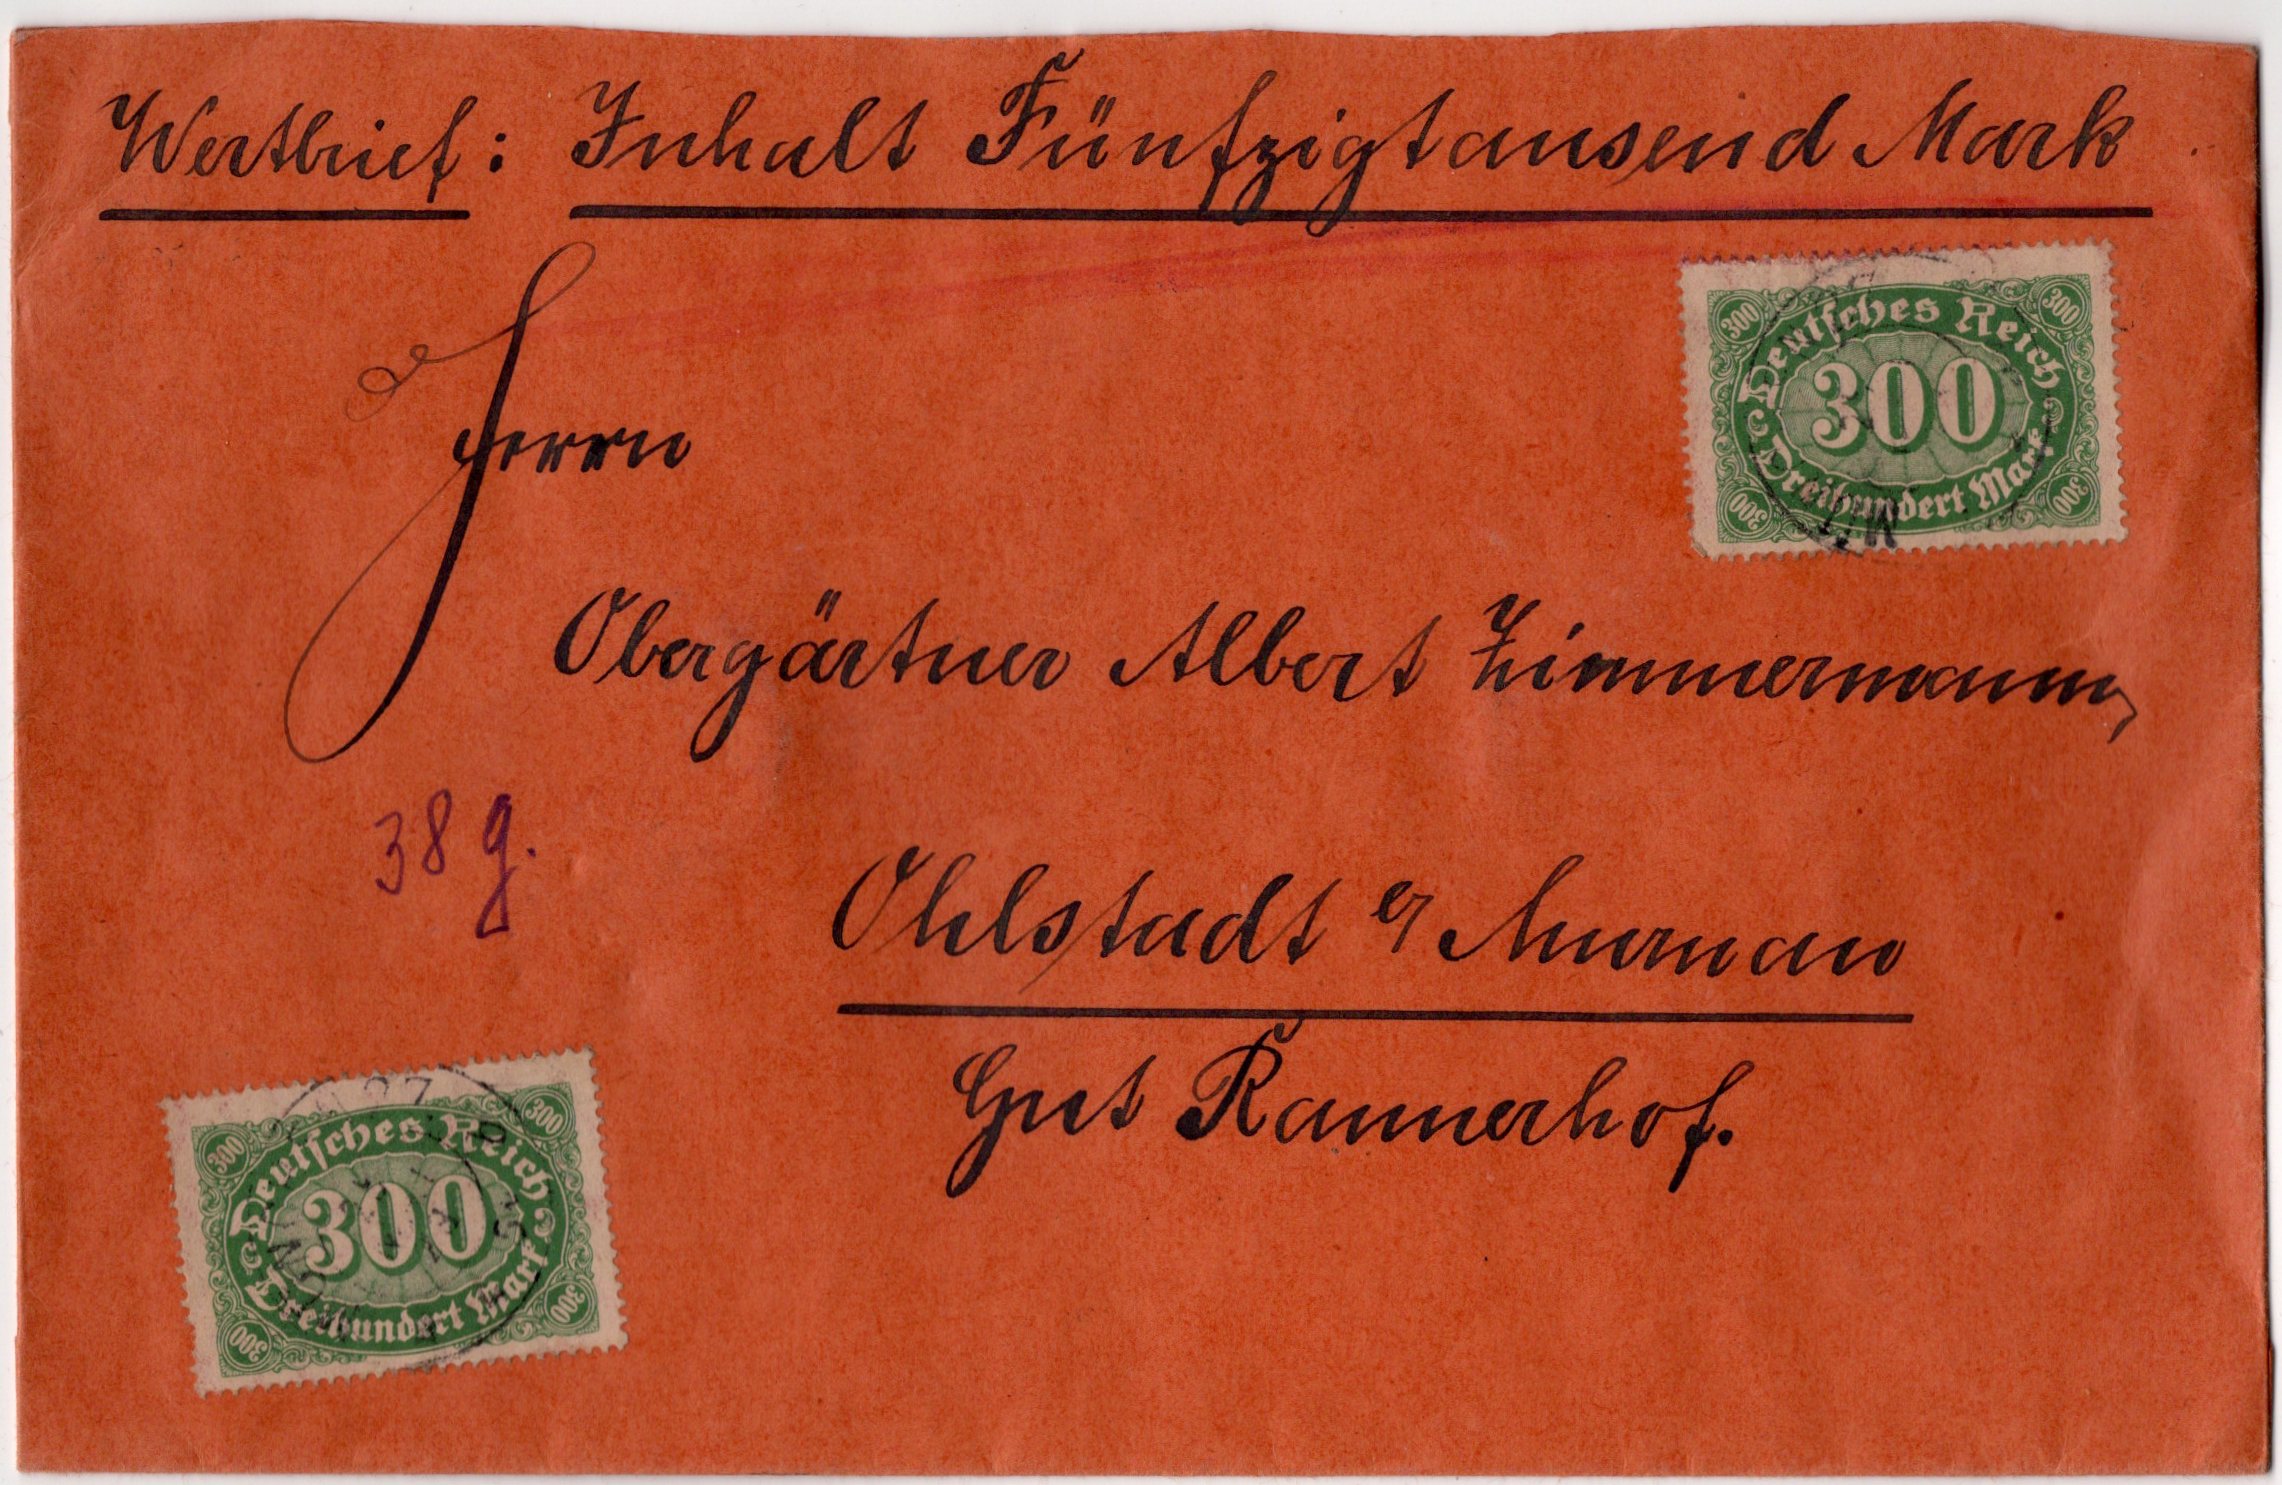 Wertbrief: Inhalt Fünfzigtausend Mark
Herrn
300 300
Deutsches Reich
300
Dreihundert Mark
300 300
Obergärtner Albert Zimmermann,
38 g.
Ohlstadt b/ Murnau
Gut Rannerhof.
300 300
Deutsches Reich
300
Dreihundert Mark
300 300